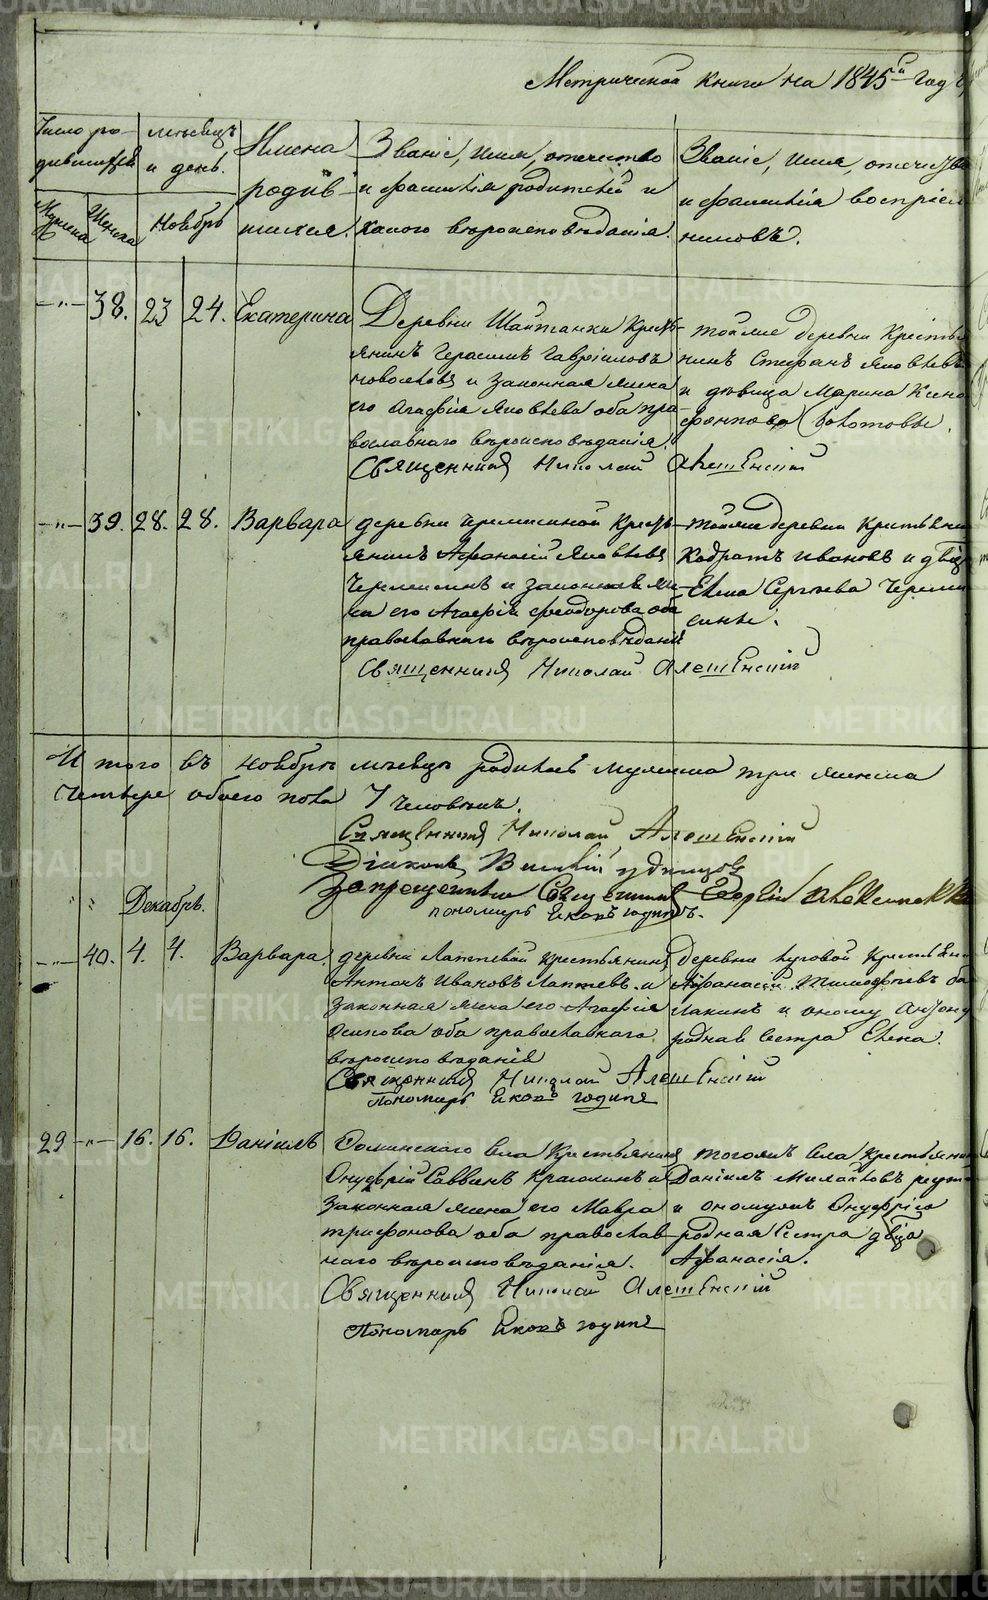 METRIKI.GASO-URAL.RU
Метрической книги на 1845й год
Число ро-
дившихся
мѣсяцъ
и день.
Имена
родив
шихся.
Званіе, имя, отечество
и фамилія родителей и
какого вѣроисповѣданія.
Званіе, имя, отечество
и фамилія воспріем
никовъ.
Мужска
Женска
Ноябрь
—"— 38. 23 24. Екатерина
Деревни Шайтанки кресть-
янинъ Герасимъ Гавріиловъ
и законная жена
его Агафія Яковлева оба пра-
вославнаго вѣроисповѣданія
Священникъ Николай
тойже деревни крестья
нинъ Стефанъ Яковлевъ
и дѣвица Марина Ксено
фонтова
—"— 39. 28. 28. Варвара
деревни Черемисиной кресть-
янинъ Афанасій Яковлевъ
Черемисинъ и законная же-
на его Агафія Феодорова оба
православнаго вѣроисповѣданія
Священникъ Николай
тойже деревни крестьянин
Кодратъ Ивановъ и двца
Елена Сергѣева Череми
сины.
Итого въ ноябрѣ мѣсяцѣ родилось мужеска три женска
четыре обоего пола 7 человѣкъ.
Священникъ Николай
Діаконъ Василій Удинцовъ
Запрещенный Священникъ Георгій
пономарь Іаковъ Юдинъ.
Декабрь.
—"— 40. 4. 4. Варвара.
деревни Лаптевой крестьянинъ
Антонъ Ивановъ Лаптевъ и
законная жена его Агафія
Осипова оба православнаго
вѣроисповѣданія
Священникъ Николай
Пономарь Іаковъ Юдинъ
деревни Луговой крестьянин
Афанасій Тимофѣевъ ба
лакинъ и оному Антону
родная сестра Елена.
29 —"— 16. 16. Даніилъ
села крестьянинъ
Онуфрій Саввинъ и
законная жена его Мавра
Трифонова оба православ-
наго вѣроисповѣданія.
Священникъ Николай
Пономарь Іаковъ Юдинъ
тогожъ села крестьянин
Даніилъ
и оному Онуфрію
родная сестра двца
Афанасія.